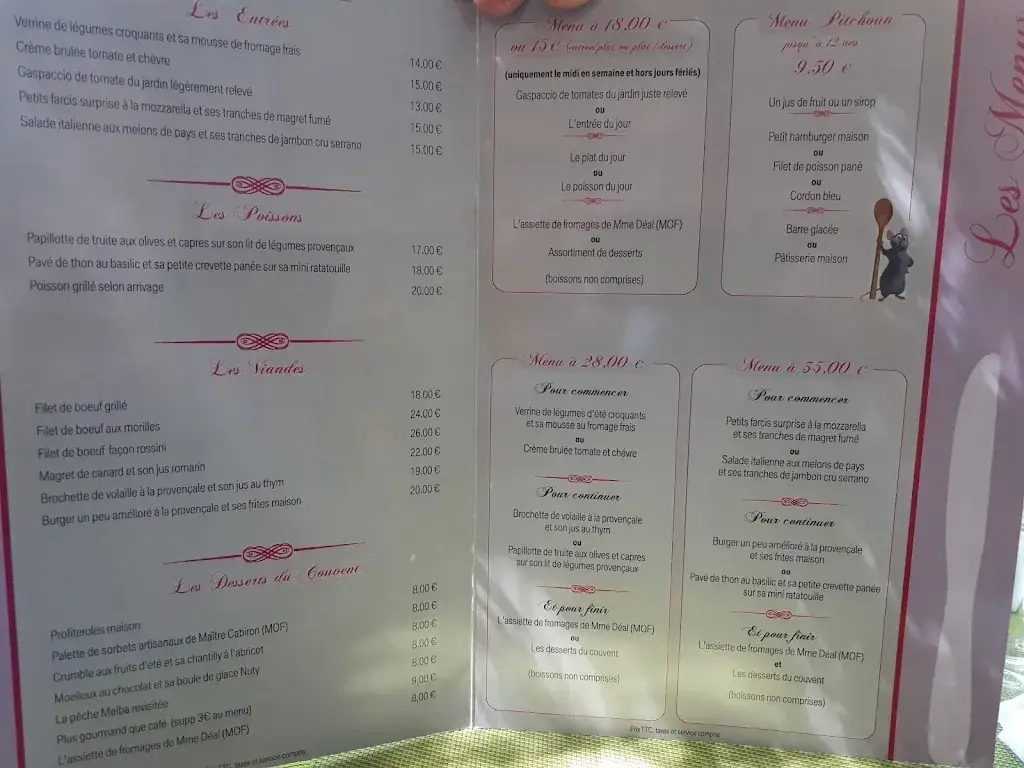 Les Entrées
Verrine de légumes croquants et sa mousse de fromage frais 14.00 €
Crème brulée tomate et chèvre 15.00 €
Gaspaccio de tomate du jardin légèrement relevé 13.00 €
Petits farcis surprise à la mozzarella et ses tranches de magret fumé 15.00 €
Salade italienne aux melons de pays et ses tranches de jambon cru serrano 15.00 €
Les Poissons
Papillotte de truite aux olives et capres sur son lit de légumes provençaux 17.00 €
Pavé de thon au basilic et sa petite crevette panée sur sa mini ratatouille 18.00 €
Poisson grillé selon arrivage 20.00 €
Les Viandes
Filet de boeuf grillé 18.00 €
Filet de boeuf aux morilles 24.00 €
Filet de boeuf façon rossini 26.00 €
Magret de canard et son jus romarin 22.00 €
Brochette de volaille à la provençale et son jus au thym 19.00 €
Burger un peu amélioré à la provençale et ses frites maison 20.00 €
Les Desserts du Couvent
Profiteroles maison 8.00 €
Palette de sorbets artisanaux de Maître Cabiron (MOF) 8.00 €
Crumble aux fruits d'été et sa chantilly à l'abricot 8.00 €
Moelleux au chocolat et sa boule de glace Nuty 8.00 €
La pêche Melba revisitée 8.00 €
Plus gourmand que café (supp 3€ au menu) 9,00 €
L'assiette de fromages de Mme Déal (MOF) 8,00 €
TTC, taxes et service compris
Menu à 18,00 €
ou 15 € (entrée/plat ou plat/dessert)
(uniquement le midi en semaine et hors jours fériés)
Gaspaccio de tomates du jardin juste relevé
ou
L'entrée du jour
Le plat du jour
ou
Le poisson du jour
L'assiette de fromages de Mme Déal (MOF)
ou
Assortiment de desserts
(boissons non comprises)
Menu Pitchoun
jusqu'à 12 ans
9.50 €
Un jus de fruit ou un sirop
Petit hamburger maison
ou
Filet de poisson pané
ou
Cordon bleu
Barre glacée
ou
Pâtisserie maison
Menu à 28,00 €
Pour commencer
Verrine de légumes d'été croquants
et sa mousse au fromage frais
ou
Crème brulée tomate et chèvre
Pour continuer
Brochette de volaille à la provençale
et son jus au thym
ou
Papillotte de truite aux olives et capres
sur son lit de légumes provençaux
Et pour finir
L'assiette de fromages de Mme Déal (MOF)
ou
Les desserts du couvent
(boissons non comprises)
Menu à 33,00 €
Pour commencer
Petits farcis surprise à la mozzarella
et ses tranches de magret fumé
ou
Salade italienne aux melons de pays
et ses tranches de jambon cru serrano
Pour continuer
Burger un peu amélioré à la provençale
et ses frites maison
ou
Pavé de thon au basilic et sa petite crevette panée
sur sa mini ratatouille
Et pour finir
L'assiette de fromages de Mme Déal (MOF)
et
Les desserts du couvent
(boissons non comprises)
Prix TTC, taxes et service compris
Les Menus